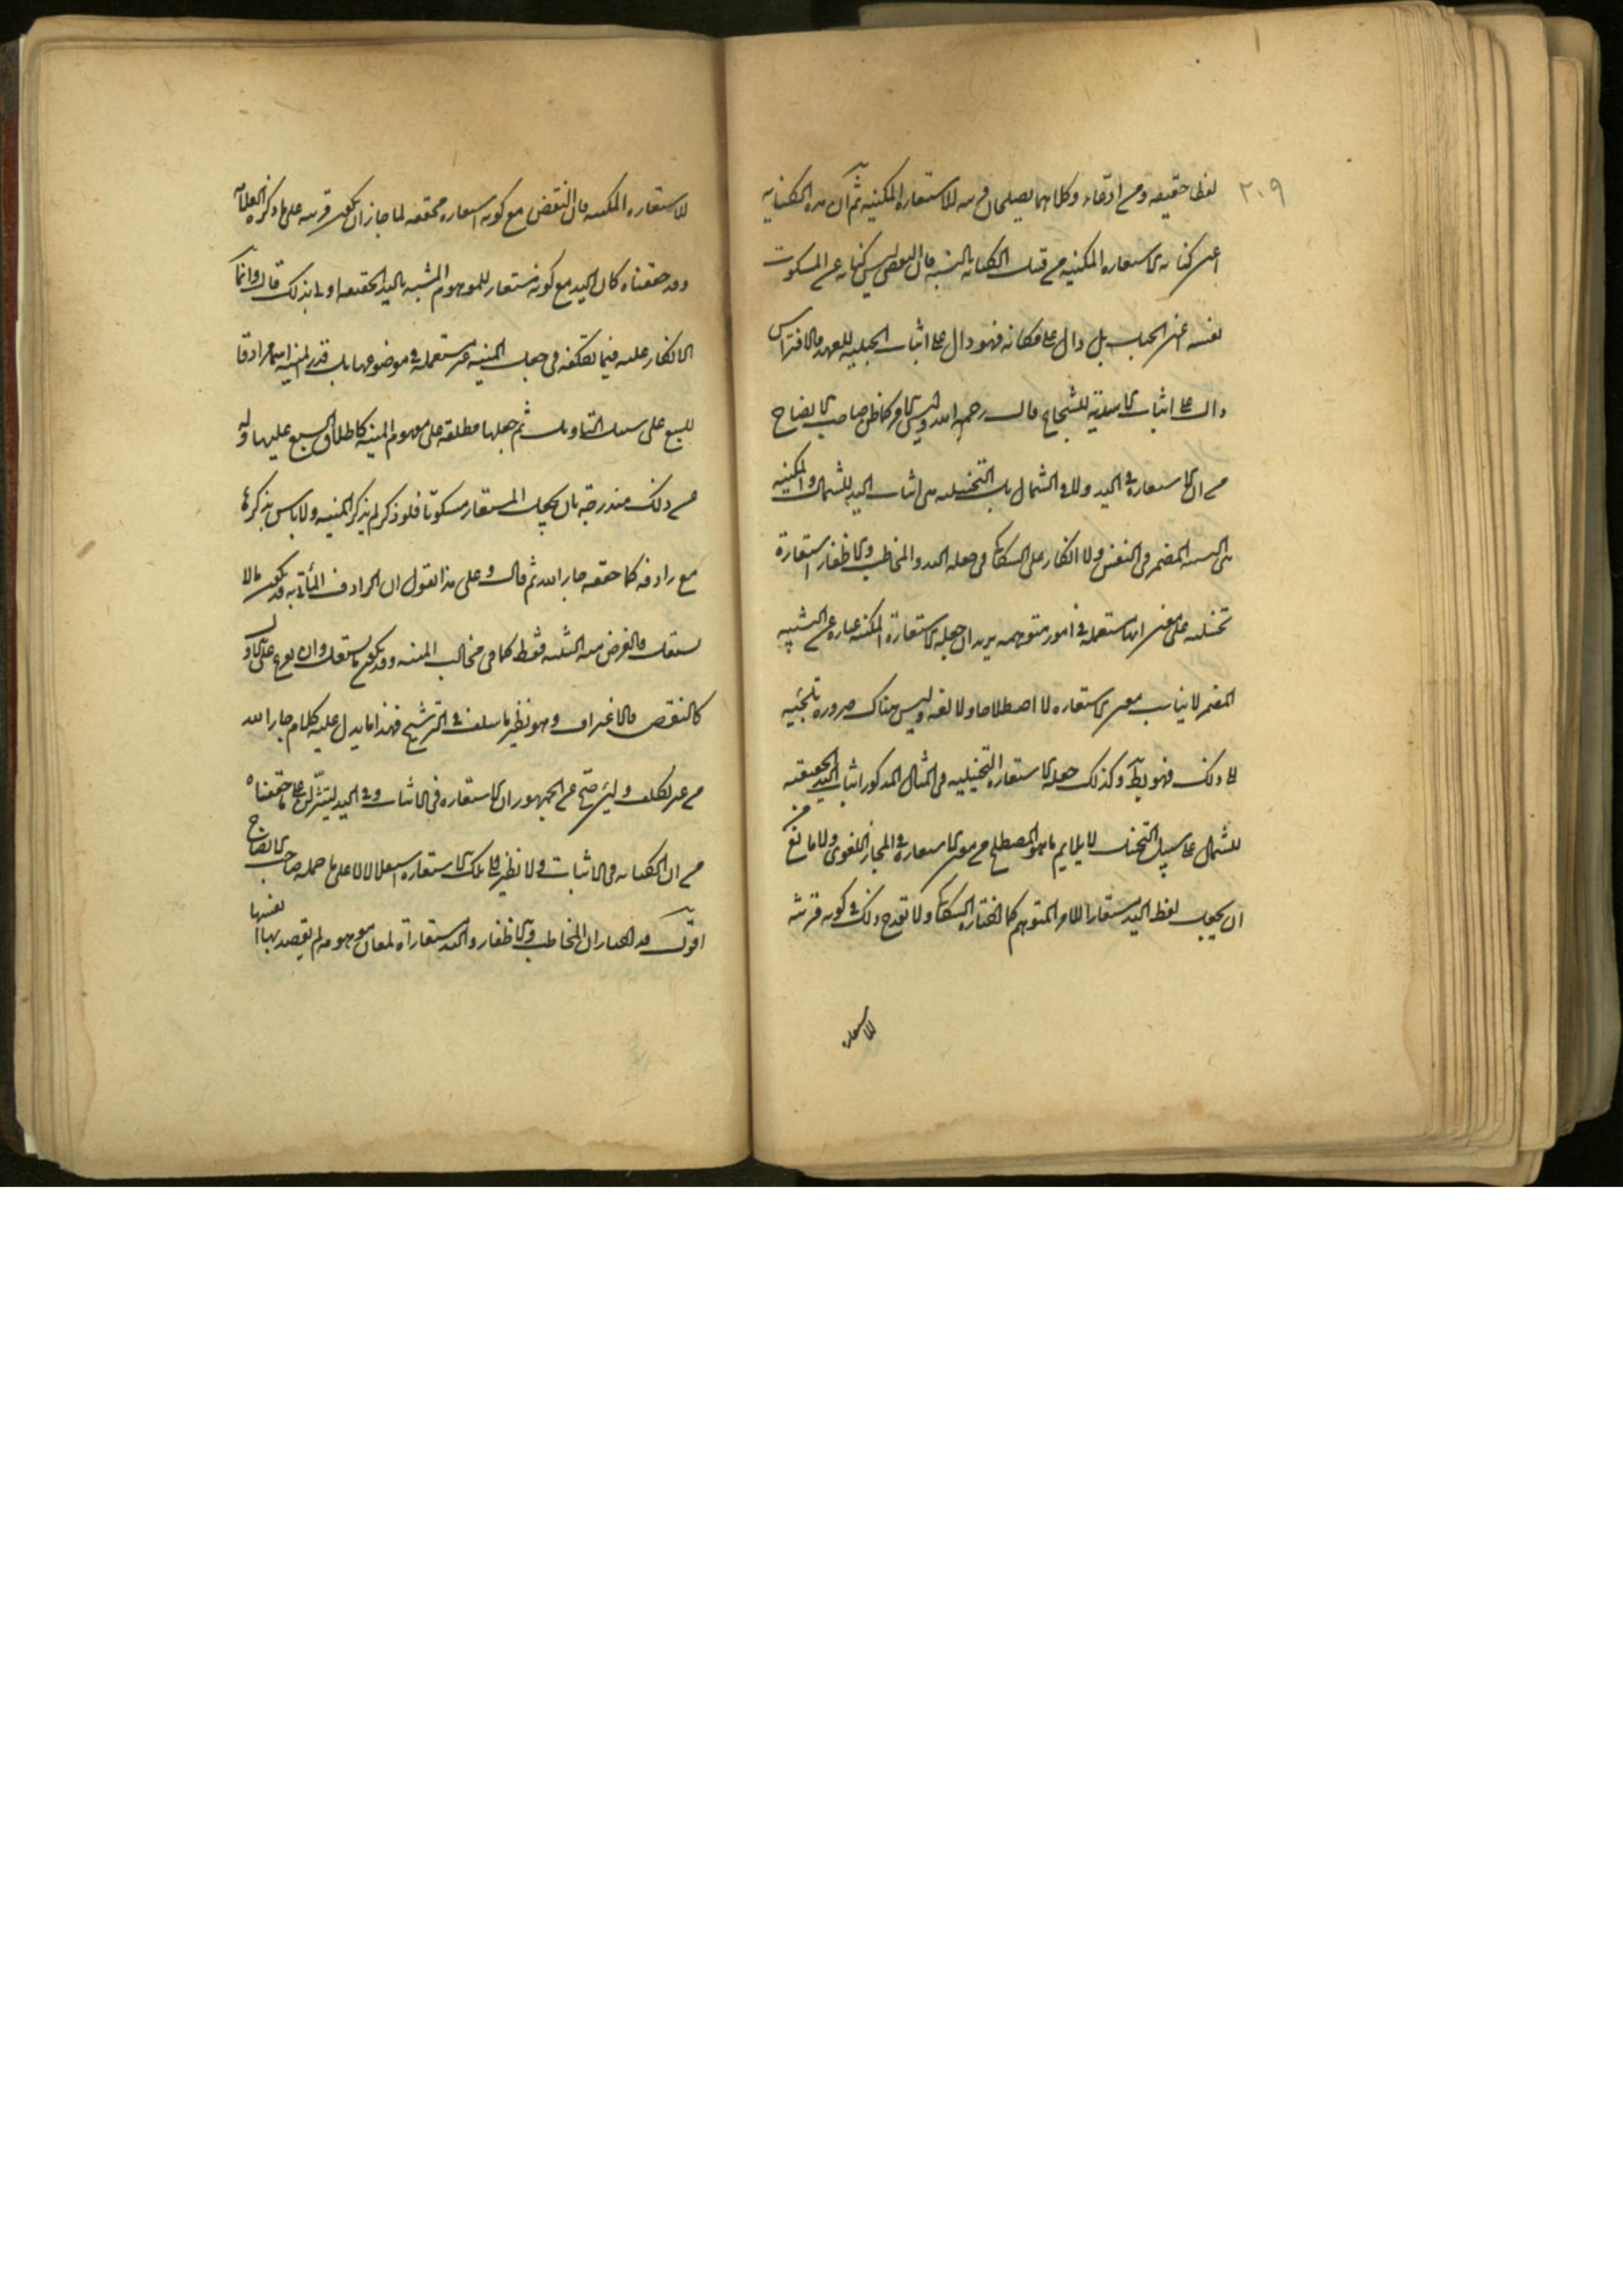 ٢٠٩
لفظ حقيقه ومن ادّعاء وكلاهما يصلحان قرينه للاستعاره المكنيه ثم ان هذه الكنايه
اعنى كنايه الاستعاره المكنيه من قبيل الكنايه بالنسبه فان النقض ليس كنايه عن المسكوت
نفسه اعنى الحبل بل دال على مكانه فهو دال على اثبات الحبليه للعهد والافتراس
دال على اثبات الاسديّه للشجاع قال رحمه الله وليس الامر كما ظن صاحب الايضاح
من ان الاستعاره فى اليد ولا فى الشمال بل التخييليه هى اثبات اليد للشمال والمكنيه
هى التشبيه المضمر فى النفس ولا انكار على السكاكى فى جعله اليد والمخالب والاظفار استعارة
تخييليه على معنى انها مستعمله فى امور متوهمه يريد ان جعله الاستعارة المكنيه عباره عن التشبيه
المضمر لا يناسب معنى الاستعاره لا اصطلاحا ولا لغه وليس هناك ضروره تلجئيه
الى ذلك فهو بط وكذلك جعله الاستعاره التخييليه فى المثال المذكور اثبات اليد الحقيقيه
للشمال على سبيل التخييل لا يلايم ما هو المصطلح من معنى الاستعاره فى المجاز اللغوى ولا مانع من
ان يجعل لفظ اليد مستعارا للامر المتوهم كما اختاره السكاكى ولا يقدح ذلك فى كونه قرينه
للاستعاره
للاستعاره المكنيه فان النقض مع كونه استعاره محققه لما جاز ان يكون قرينه على ما ذكره العلامه
وقد حققناه كان اليد مع كونه مستعار للموهوم المشبه باليد الحقيقيه اولى بذلك قال وانما
الانكار عليه فيما تكلفه فى جعل المنيه غير مستعمله فى موضوعها بل قدر المنيه اسما مرادفا
للسبع على سبيل التاويل ثم جعلها مطلقه على مفهوم المنيه كاطلاق السبع عليها وله
عن ذلك مندرحة بان يجعل المستعار مسكوتا فلو ذكر لم يذكر المنيه ولا باس بذكرها
مع رادفه كما حققه جار الله ثم قال وعلى هذا القول ان الرادف المأتى به قد يكون مالا
يستقل والغرض منه التنبيه فقط كما فى مخالب المنيه وقد يكون مما يستقل وان تفرع على الاول
كالنقض والاغتراف وهو نظير ما سلف فى الترشيح فهذا ما يدل عليه كلام جار الله
من غير تكلف ولئن صح عن الجمهور ان الاستعاره فى الاثبات وفى اليد ليتنزلن على ما حققناه
من ان الكنايه فى الاثبات ولا نظير فى تلك الاستعاره استقلالا لا على ما حمله صاحب الايضاح
اقول قد اختار ان المخالب والاظفار واليد مستعارة لمعان موهومه لم يقصد بها انفسها